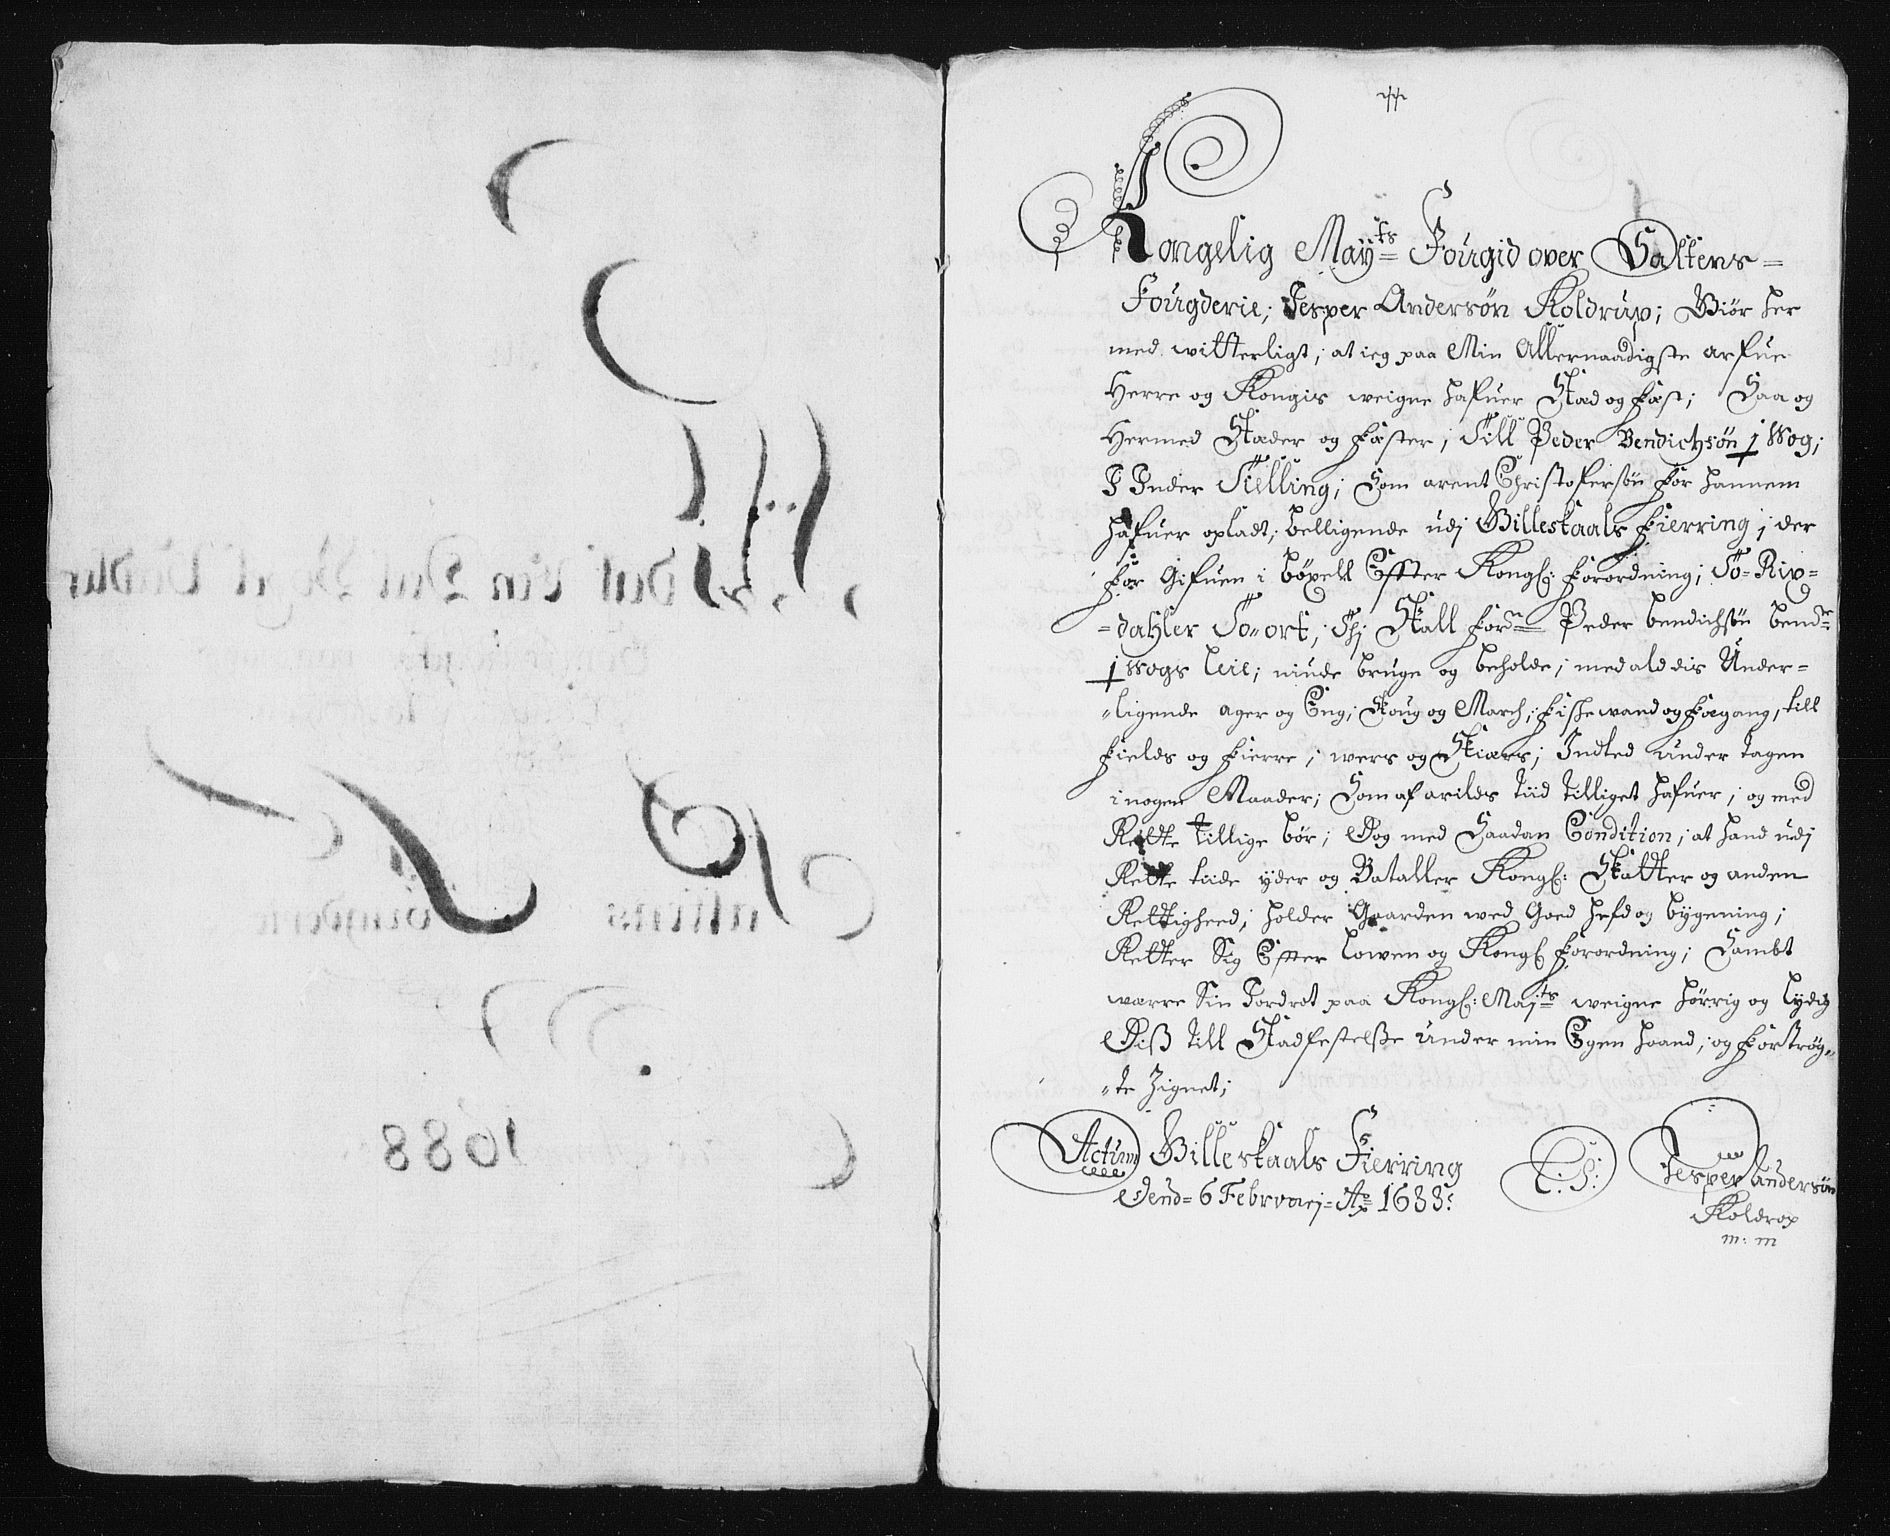 Kongelig May:ts Fougid over Saltens=
Fougderie; Jesper Andersøn Koldrup; Giör her
med witterligt; at ieg paa Min Allernaadigste arfue
Herre og Kongis weigne hafuer Stæd og fæst; Saa og
Hermed Stæder og fæster; Till Peder Bendichsøn i Wog;
I Inder Tielling; Som arent Christofersøn for hannem
hafuer opladt; belligende udj Billeskaals fierring; der
for Gifuen i böxell Effter Kongl: forordning; To=Rix=
=dahler To=ort; Thj Skall ford:n Peder bendichsøn bem:te
i Wogs leie; niude bruge og beholde; med ald dis Under=
=ligende ager og Eng; Skoug og March; fiskewand og fægang, till
fields og fierre; wers og Skiærs; Indted under tagen
i nogen Maader; Som af arilds tiid tilliget hafuer; og med
Rette tillige bör; Dog med Saadan Condition; at hand udj
Rette tiide yder og Betaller Kongl: Skatter og anden
Rettigheed; holder Gaarden wed Goed hefd og bygening;
Retter Sig Efter lowen og Kongl forordning; Sambt
wærre Sin foedret paa Kongl: Maj:ts weigne hørrig og lydig
Diß till Stadfestelße under min Egen haand; og fortrög=
=te Zignet;
Actum Billeskaals Fierring
Dend= 6 Februarj= Ao 1688:
L:S:
Jesper Andersøn
Koldrop
m: m
1688